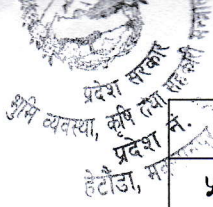 प्रदेश सरकार
भूमि व्यवस्था, कृषि तथा सहकारी
प्रदेश नं.
हेटौंडा,